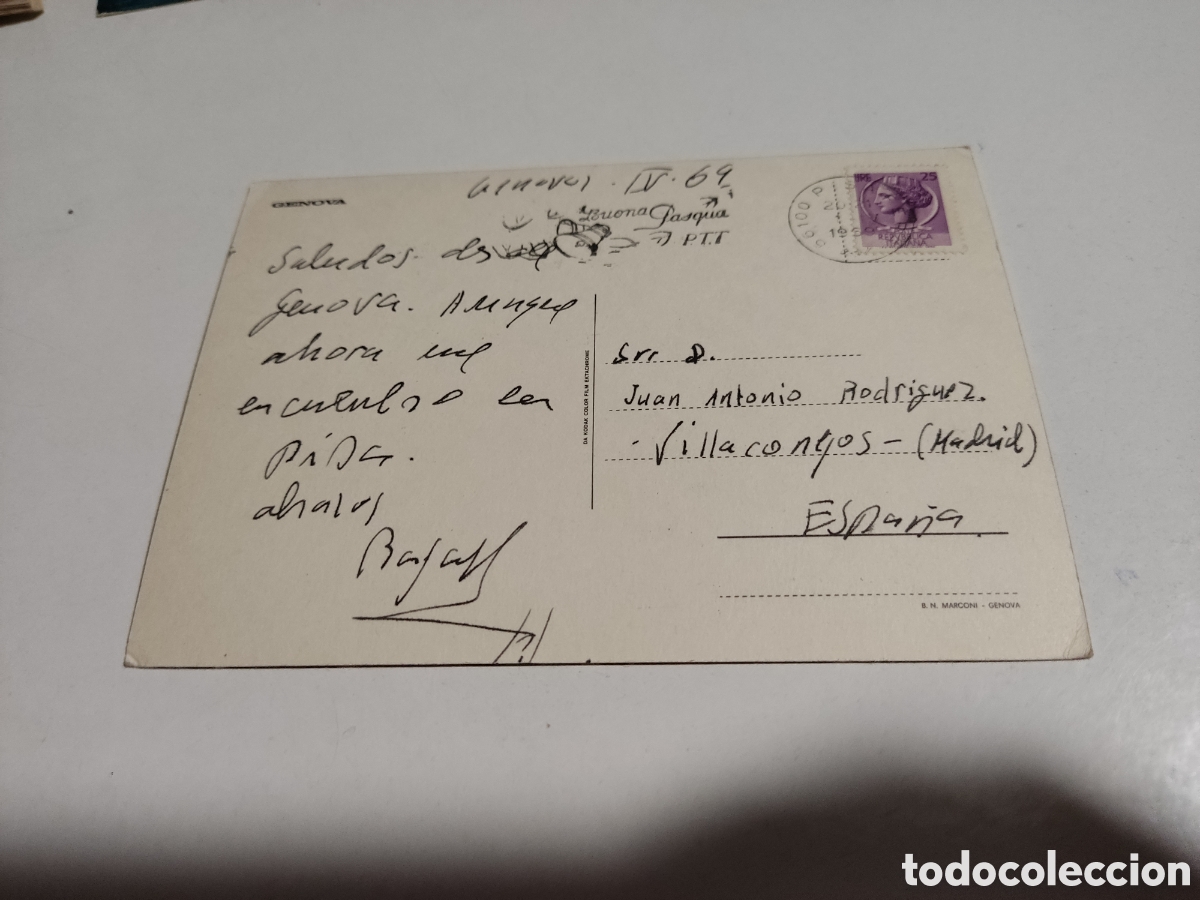 GENOVA
Genova. IV. 69
Buona Pasqua
P.T.T
56100 P
LIRE 25
REPUBBLICA
ITALIANA
Saludos desde
Genova. Aunque
ahora me
encuentro en
PISA.
abrazos
Rafael
DA KODAK COLOR FILM EKTACHROME
Srr D.
Juan Antonio Rodriguez.
Villaconejos - (Madrid)
ESPaña.
B. N. MARCONI - GENOVA
todocoleccion